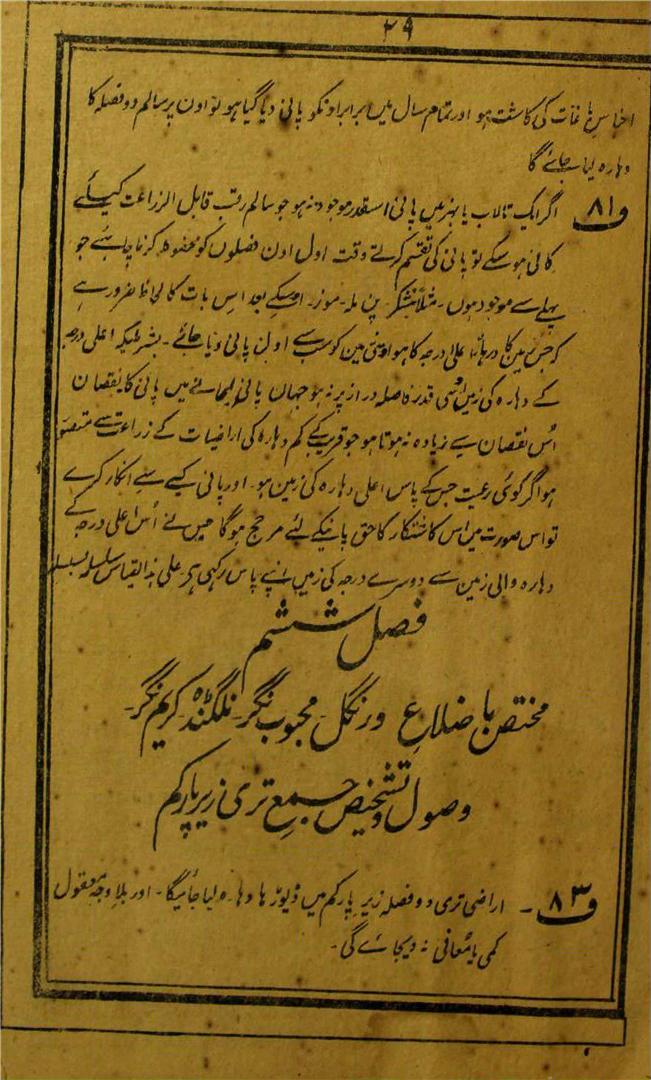 ۲۹
اجناس باغات کی کاشت ہو اور تمام سال میں برابر اونکو پانی دیا گیا ہو تو اون پر سالم دو فصلہ کا
دہارہ لیا جائے گا
ف۸۱ اگر ایک تالاب یا نہر میں پانی اسقدر موجود نہ ہو جو سالم رقبہ قابل الزراعت کیلئے
کافی ہو سکے تو پانی کی تقسیم کرتے وقت اول اون فصلوں کو محفوظ کرنا چاہئے جو
پہلے سے موجود ہوں ۔ مثلاً نیشکر ۔ پن ملہ ۔ موز ۔ اوسکے بعد اس بات کا لحاظ ضرور ہے
کہ جس زمین کا دہارہ اعلیٰ درجہ کا ہو اوسی زمین کو سب سے اول پانی دیا جائے ۔ بشرطیکہ اعلی درجہ
کے دہارہ کی زمین اوسی قدر فاصلہ دراز پر نہ ہو جہاں پانی لیجانے میں پانی کا نقصان
اُس نقصان سے زیادہ نہ ہوتا ہو جو قریب کے کم دہارہ کی اراضیات کے زراعت سے متصور
ہو اگر کوئی رعیت جس کے پاس اعلی دہارہ کی زمین ہو ۔ اور پانی لینے سے انکار کرے
تو اس صورت میں اس کاشتکار کا حق پانیکے لئے مرجح ہوگا جس نے اُس اعلی درجہ کے
دہارہ والی زمین سے دوسرے درجہ کی زمین اپنے پاس رکہی ہے علی ہذا القیاس سلسلہ بسلسلہ
فصل ششم
مختص باضلاع ورنگل ۔ محبوب نگر ۔ نلگنڈہ کریم نگر ۔
وصول و تشخیص جمع تری زیر پارکم
ف۸۳ ۔ اراضی تری دو فصلہ زیر پارکم میں ڈیوڑہا دہارہ لیا جائیگا ۔ اور بلا وجہ معقول
کمی یا معافی نہ دیجائے گی ۔